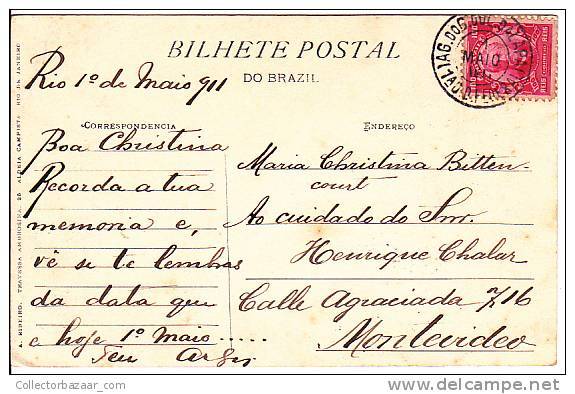 BILHETE POSTAL
DO BRAZIL
Rio 1º de Maio 911
CORRESPONDENCIA
Boa Christina
Recorda a tua
memoria e,
vê se te lembras
da data que
e hoje 1º maio.....
Teu
ENDEREÇO
Maria Christina Bitten-
court
Ao cuidado do Snr.
Henrique Chalar
Calle Agraciada 716
Montevideo
MAIO
REIS
A. RIBEIRO, TRAVESSA AMBROSINA, 25 ALDEIA CAMPISTA RIO DE JANEIRO
Collectorbazaar__com
delcampe.net